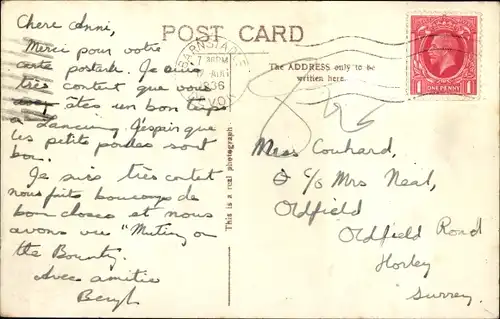 POST CARD
Chere Anni,
Merci pour votre
carte postale. Je suis
très content que vous
êtes un bon temps
à J'espir que
les petite sont
bon.
Je suis très contet
nous faits boucoup de
bon closes et nous
avons vu "Mutiny on
the Bounty.
Avec amitie
Beryl
This is a real photograph.
BARNSTAPLE
7 30 PM
AUG
36
DEVON
The ADDRESS only to be
written here.
1 ONE PENNY 1
8
Miss Couhard,
c/o Mrs Neal,
Oldfield
Oldfield Road
Horley
Surrey.